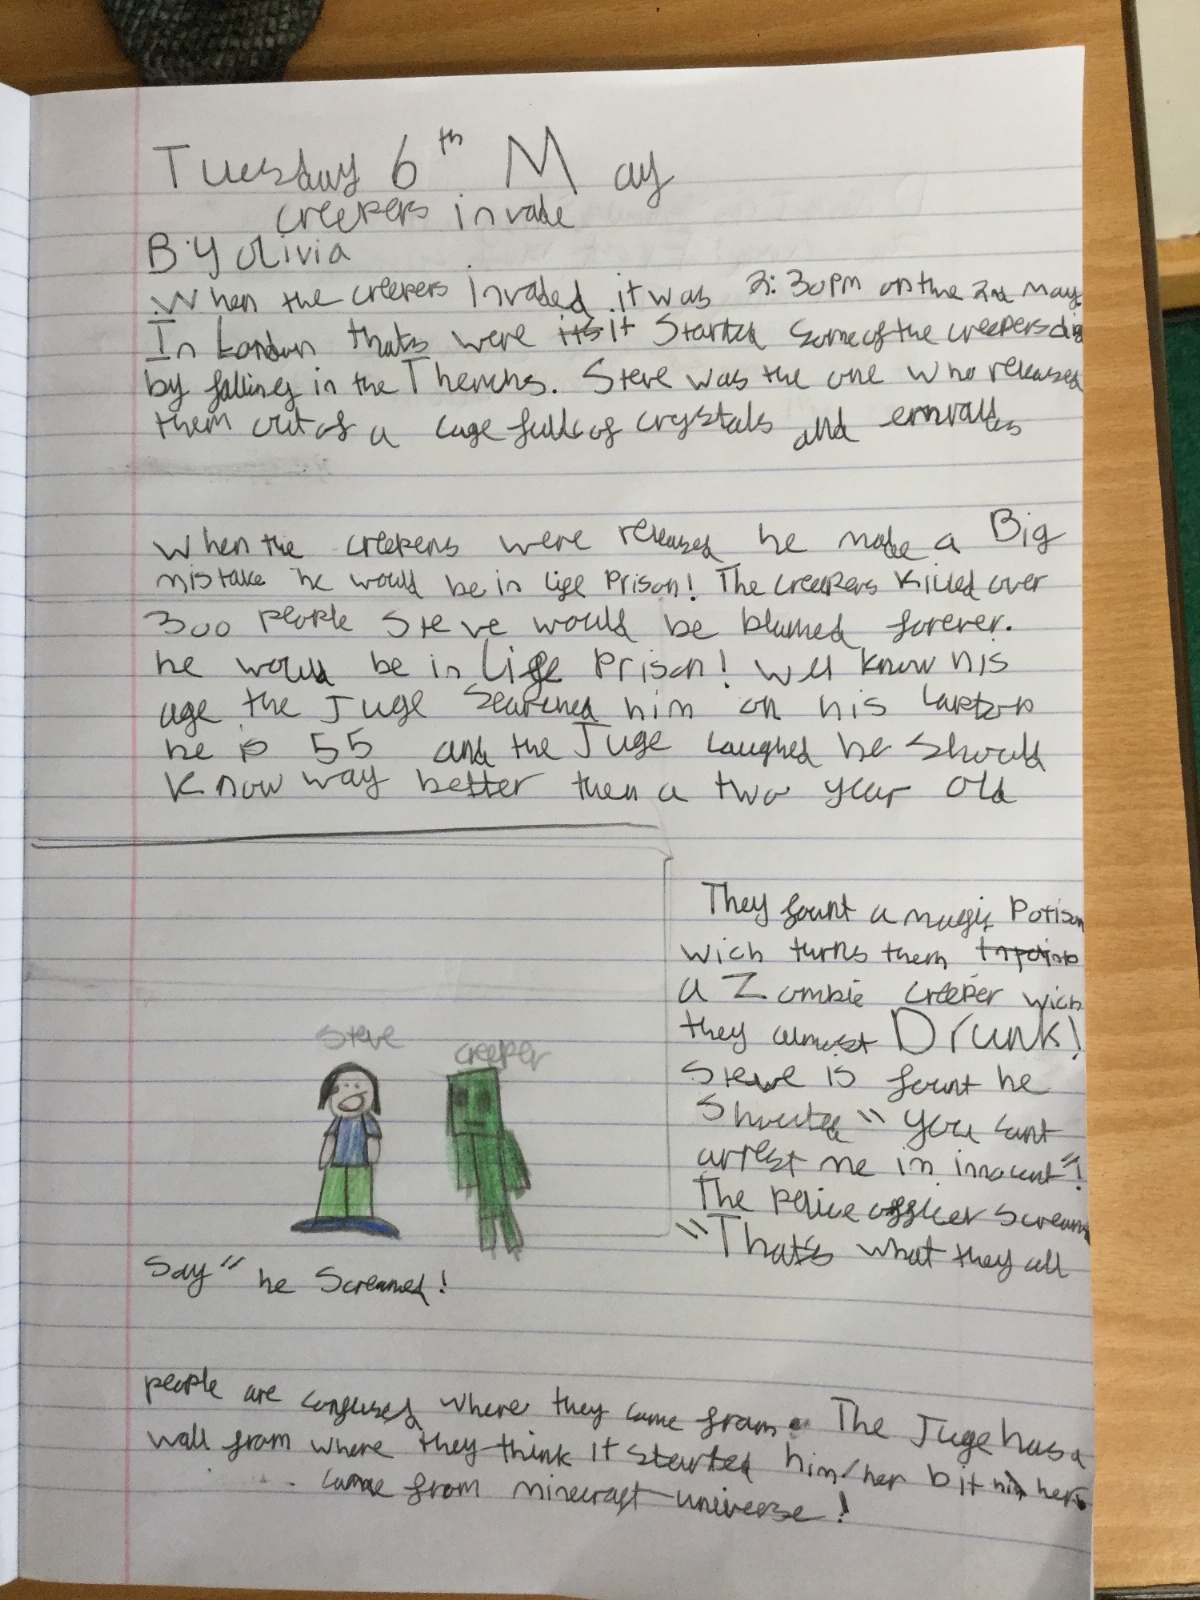 Tuesday 6th May
creepers invade
By olivia
When the creepers invaded it was 2:30pm on the 2nd may
In London thats were it Started Some of the creepers die
by falling in the Thenchs. Steve was the one who released
them out of a cage full of crystals and emralds
When the creepers were released he made a Big
mistake he would be in life Prison! The creepers killed over
300 people Steve would be blamed forever.
he would be in Life Prison! Well know his
age the Juge Searched him on his Laptop
he is 55 and the Juge laughed he Should
know way better then a two year old
They fount a magic Potison
wich turns them
a Zombie creeper wich
they almost Drunk!
Steve is fount he
Shouted "You cant
arrest me im innocent"!
The Police officer Scream
"That's what they all
Say" he Screamed!
Steve
creeper
people are confused where they came from. The Juge has a
wall from where they think it started him/her bit her
came from minecraft universe!